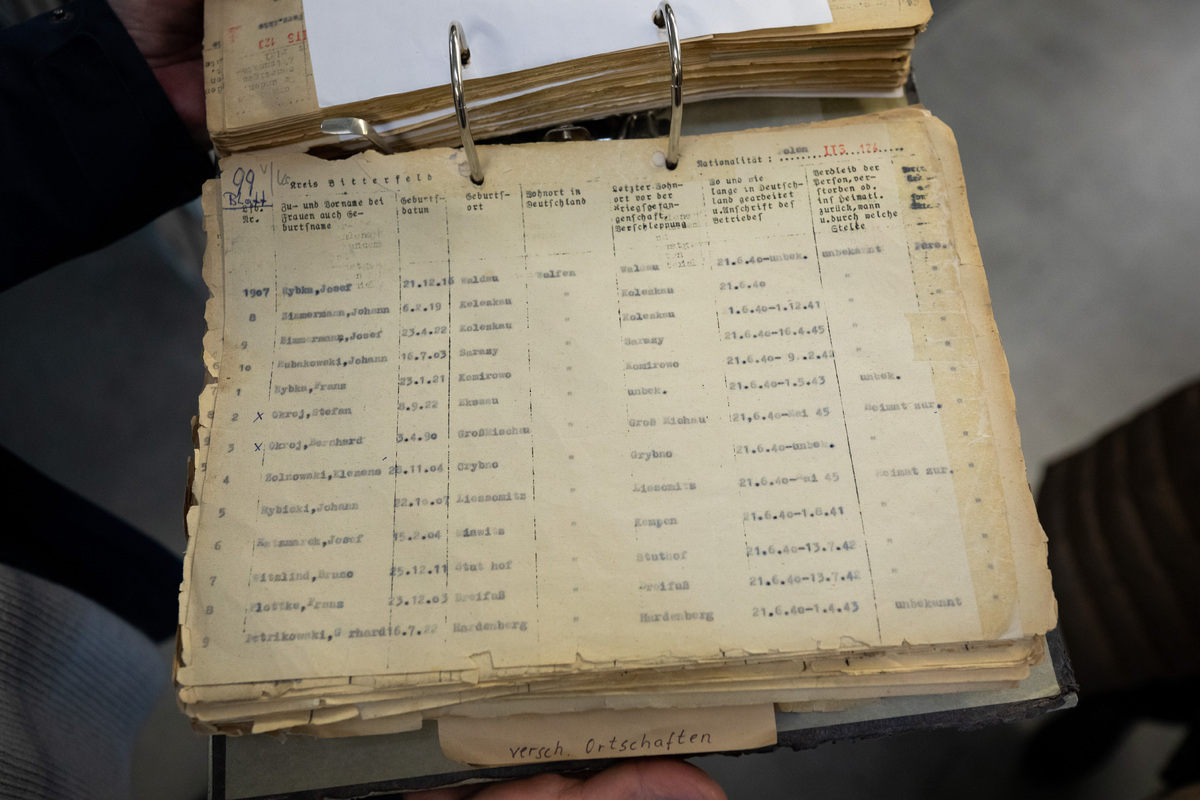 ITS 123
99
Blatt
Kreis Bitterfeld
Nationalität : Polen ITS 121
Lfd. Nr.
Zu- und Vorname bei
Frauen auch Ge-
burtsname
Geburts-
datum
Geburts-
ort
Wohnort in
Deutschland
Letzter Wohn-
ort vor der
Kriegsgefan-
genschaft,
Verschleppung
Wo und wie
lange in Deutsch-
land gearbeitet
u.Anschrift des
Betriebes
Verbleib der
Person,ver-
storben od.
ins Heimatl.
zurück,wann
u.durch welche
Stelle
1907 Rybka,Josef 21.12.16 Waldau Wolfen Waldau 21.6.40-unbek. unbekannt
8 Zimmermann,Johann 6.2.19 Koleskau " Koleskau 21.6.40 "
9 Zimmermann,Josef 23.4.22 Koleskau " Koleskau 21.6.40-1.12.41 "
10 Rubakowski,Johann 16.7.03 Sarazy " Sarazy 21.6.40-16.4.45 "
1 Rybka,Franz 23.1.21 Komirowo " Komirowo 21.6.40- 9.2.42 "
2 x Okroj,Stefan 8.9.22 " unbek. 21.6.40-1.5.43 unbek.
3 x Okroj,Bernhard 3.4.90 GroßMischau " Groß Michau 21,6.40-Mai 45 Heimat zur.
4 Zolnowski,Klemens 23.11.04 Grybno " Grybno 21.6.40-unbek. "
5 Rybicki,Johann 22.10.07 " 21.6.40-Mai 45 Heimat zur.
6 Josef 15.2.04 " Kempen 21.6.40-1.8.41 "
7 Bruno 25.12.11 Stut hof " Stuthof 21.6.40-13.7.42 "
8 Plottke,Franz 23.12.03 Dreifuß " Dreifuß 21.6.40-13.7.42 "
9 Petrikowski,G rhard 16.7.22 Hardenberg " Hardenberg 21.6.40-1.4.43 unbekannt
versch. Ortschaften